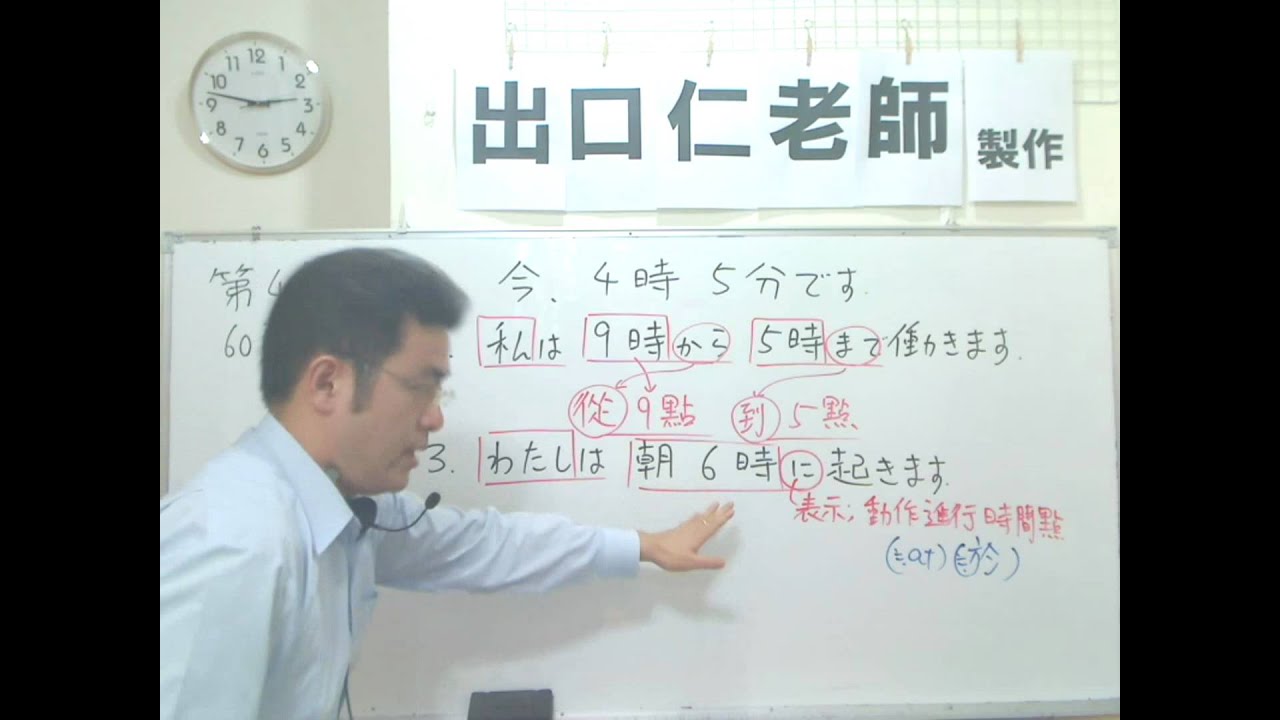 12
11
10
9
8
7
6
5
4
3
2
出口仁老師 製作
第4 今、4時 5分です.
60 私は 9時から 5時まで働きます.
從 9點 到 5點
3. わたしは 朝 6時に起きます.
表示; 動作進行時間點
(≒at) (≒於)